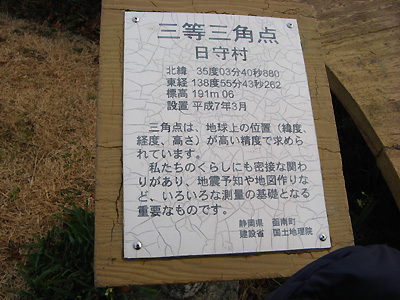 三等三角点
日守村
北緯 35度03分40秒880
東経 138度55分43秒262
標高 191m 06
設置 平成7年3月
三角点は、地球上の位置（緯度、
経度、高さ）が高い精度で求めら
れています。
私たちのくらしにも密接な関わ
りがあり、地震予知や地図作りな
ど、いろいろな測量の基礎となる
重要なものです。
静岡県 函南町
建設省 国土地理院